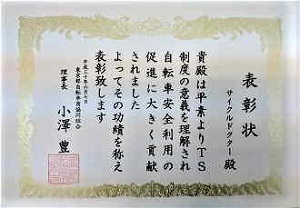 表彰状
サイクルドクター殿
貴殿は平素よりTS
制度の意義を理解され
自転車安全利用の
促進に大きく貢献
されました
よってその功績を称え
表彰致します
平成二十年六月七日
東京都自転車商協同組合
理事長 小澤 豊